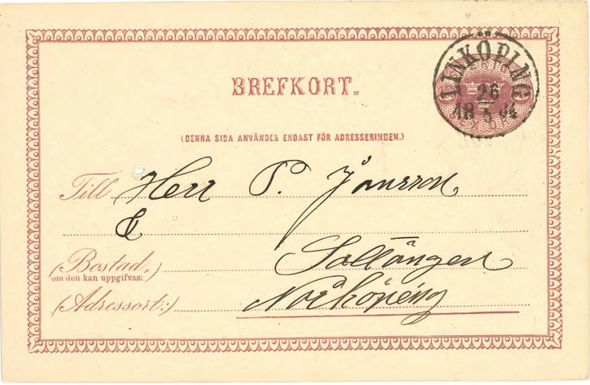 LINKÖPING
26
18 5 84
BREFKORT.
(DENNA SIDA ANVÄNDES ENDAST FÖR ADRESSERINGEN.)
Till Herr P. Jonsson
&
(Bostad,) Saltängen
om den kan uppgifvas:
(Adressort:) Norköping